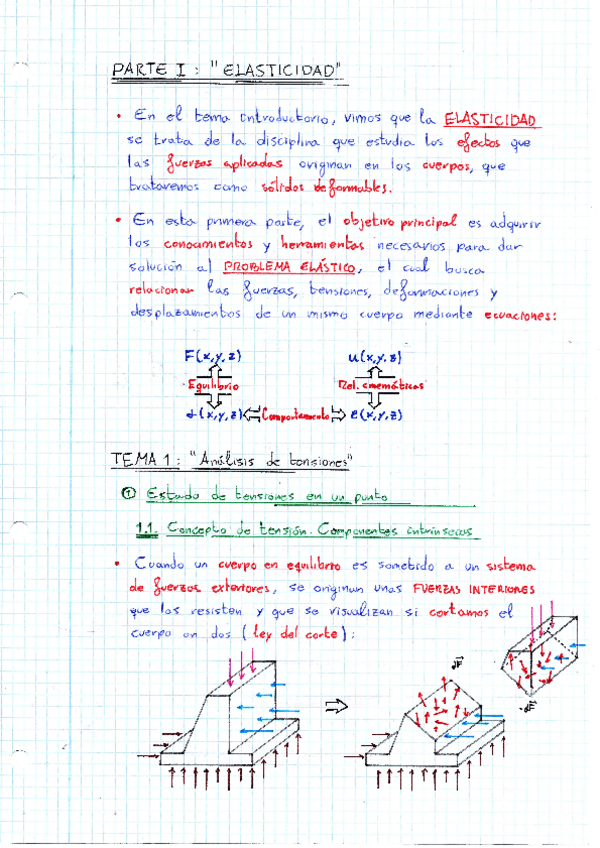 PARTE I : "ELASTICIDAD"
• En el tema introductorio, vimos que la ELASTICIDAD
se trata de la disciplina que estudia los efectos que
las fuerzas aplicadas originan en los cuerpos, que
trataremos como sólidos deformables.
• En esta primera parte, el objetivo principal es adquirir
los conocimientos y herramientas necesarios para dar
solución al PROBLEMA ELÁSTICO, el cual busca
relacionar las fuerzas, tensiones, deformaciones y
desplazamientos de un mismo cuerpo mediante ecuaciones:
F(x,y,z) u(x,y,z)
Equilibrio Rel. cinemáticas
(x,y,z) Comportamiento ε(x,y,z)
TEMA 1: "Análisis de tensiones"
① Estado de tensiones en un punto
1.1. Concepto de tensión. Componentes intrínsecas
• Cuando un cuerpo en equilibrio es sometido a un sistema
de fuerzas exteriores, se originan unas FUERZAS INTERIORES
que las resisten y que se visualizan si cortamos el
cuerpo en dos (ley del corte):